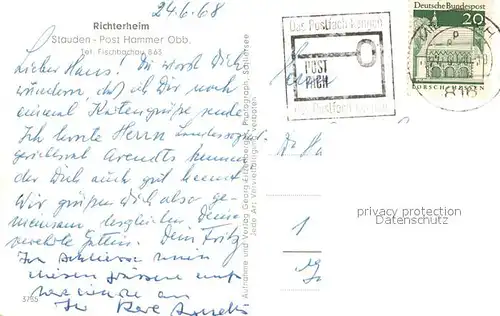 24.6.68
Richterheim
Stauden - Post Hammer Obb.
Tel. Fischbachau 863
Lieber Hans! Du wirst Dich
wundern, daß ich Dir noch
einmal Kartengrüße sende
Ich lernte Herrn Landessozial-
gerichtsrat Arendts kennen
der Dich auch gut kennt
Wir grüßen Dich also ge-
meinsam, desgleichen Deine
verehrte Gattin. Dein Fritz
Ich schliesse mich
diesen Grüssen
an
Ihr
3765
Aufnahme und Verlag Georg Photograph, Schliersee
Jede Art Vervielfältigung verboten
Das Postfach
POST
FACH
Deutsche Bundespost
20
LORSCH/HESSEN
1
privacy protection
Datenschutz